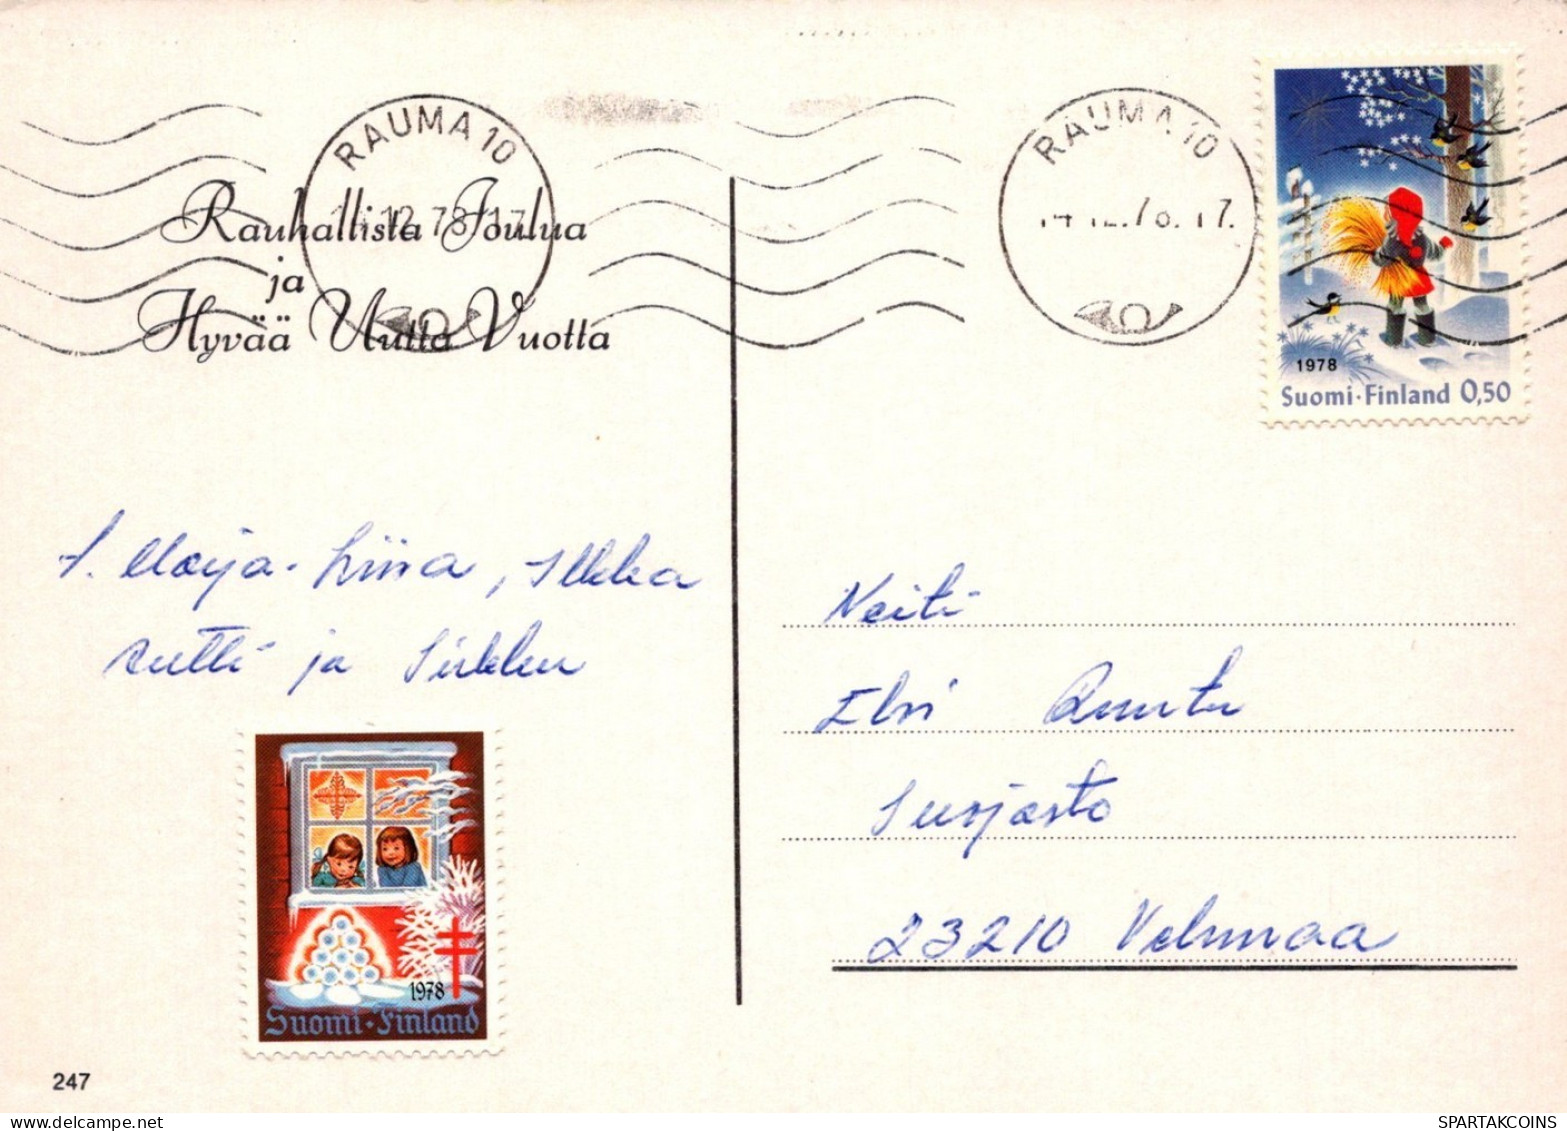 RAUMA 10
14.12.78.17
RAUMA 10
14.12.78.17.
Rauhallista Joulua
ja
Hyvää Uutta Vuotta
1978
Suomi·Finland 0,50
t. Marja-Liisa, Ilkka
ja Sirkku
Neiti
Elvi
Surjasto
23210 Vehmaa
1978
Suomi·Finland
247
SPARTAKCOINS